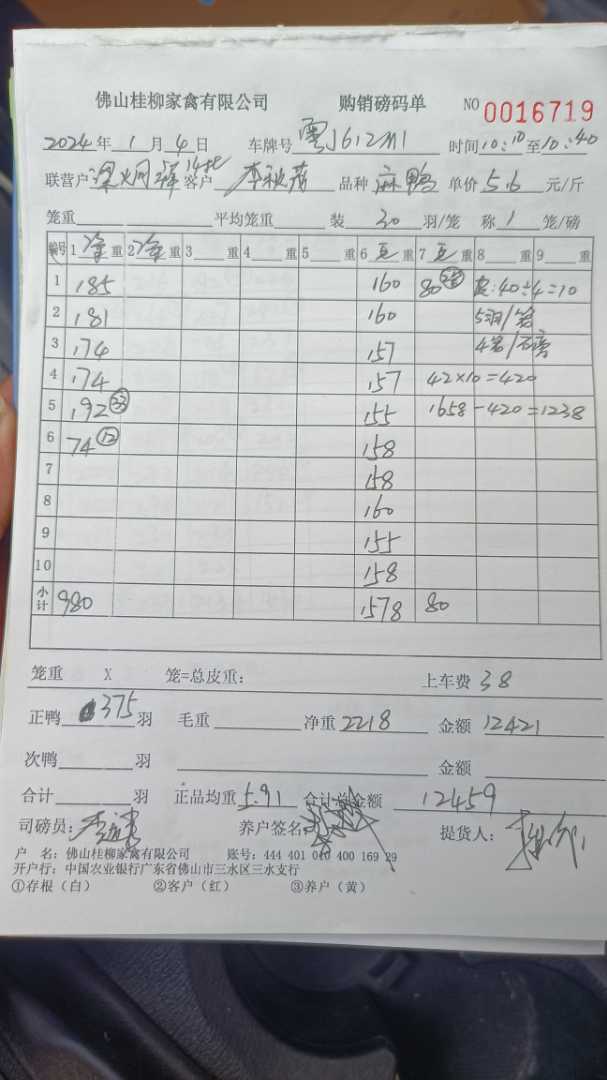 佛山桂柳家禽有限公司 购销磅码单 NO 0016719
2024年 1 月 4 日 车牌号 粤J612M1 时间 10:10 至 10:40
联营户 客户 李秋 品种 麻鸭 单价 5.6 元/斤
笼重 平均笼重 装 30 羽/笼 称 1 笼/磅
编号 1 净 重 2 净 重 3 重 4 重 5 重 6 毛 重 7 毛 重 8 重 9 重
1 185 160 80 :40÷4=10
2 181 160 5羽/笼
3 174 157 4笼/
4 174 157 42×10=420
5 192 155 1658-420=1238
6 74 ⑫ 158
7 158
8 160
9 155
10 158
小计 980 1578 80
笼重 X 笼=总皮重: 上车费 38
正鸭 375 羽 毛重 净重 2218 金额 12421
次鸭 羽 金额
合计 羽 正品均重 5.91 合计总金额 12459
司磅员: 养户签名: 提货人:
户 名: 佛山桂柳家禽有限公司 账号: 444 401 010 400 169 29
开户行: 中国农业银行广东省佛山市三水区三水支行
①存根（白） ②客户（红） ③养户（黄）